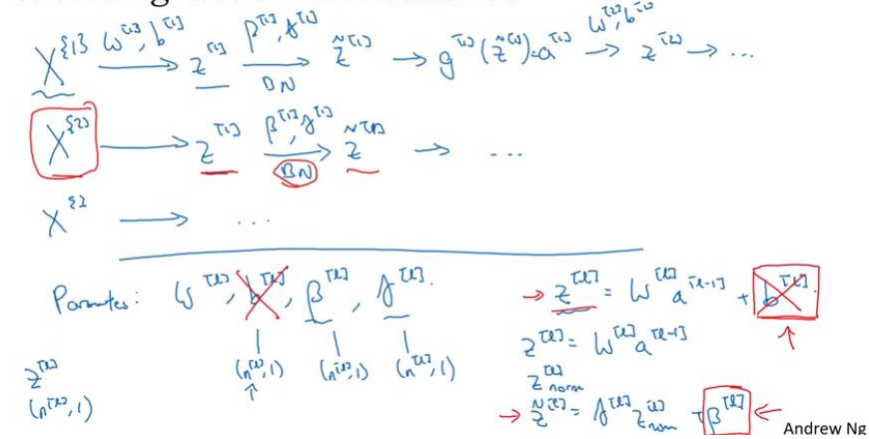 X^{1} W^[1], b^[1] → z^[1] β^[1], γ^[1] BN → z̃^[1] → g^[1](z̃^[1]) = a^[1] W^[2], b^[2] → z^[2] → ...
X^{2} → z^[1] β^[1], γ^[1] BN → z̃^[1] → ...
→ ...
W^[l], b^[l], β^[l], γ^[l].
(n^[l], 1) (n^[l], 1) (n^[l], 1)
z^[l]
(n^[l], 1)
→ z^[l] = W^[l] a^[l-1] + b^[l]
z^[l] = W^[l] a^[l-1]
z^[l]_norm
→ z̃^[l] = γ^[l] z^[l]_norm + β^[l] ←
Andrew Ng